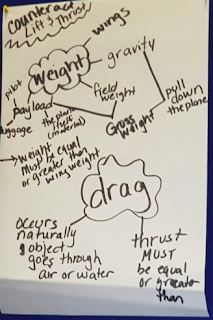 counteract
Lift & Thrust
wings
weight
gravity
pilot
payload
luggage
the plane
itself
(material)
field
weight
Gross
weight
pull
down
the plane
→ weight
must be equal
or greater than
wing weight
drag
occurs
naturally
object
goes through
air or water
thrust
MUST
be equal
or greater
than